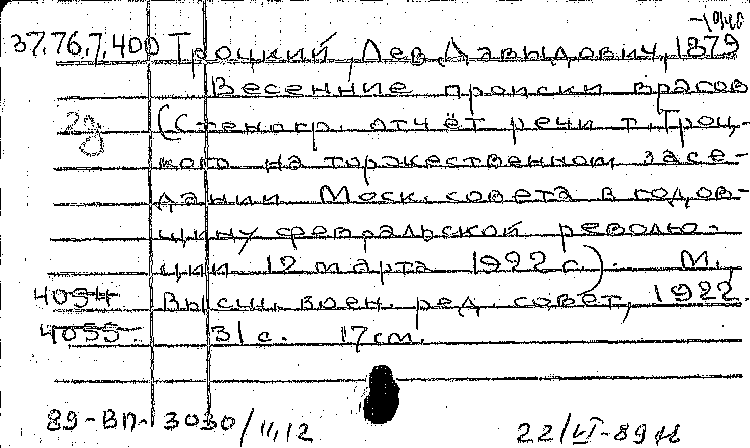 -1940
37.76.7.400 Троцкий, Лев Давыдович, 1879
Весенние происки врагов
2д (Стеногр. отчёт речи т. Троц-
кого на торжественном засе-
дании Моск. совета в годов-
щину февральской револю-
ции 12 марта 1922 г.). М.,
4054 Высш. воен. ред. совет, 1922.
4055. 31 с. 17 см.
89-ВП-3030/11,12
22/VI-89